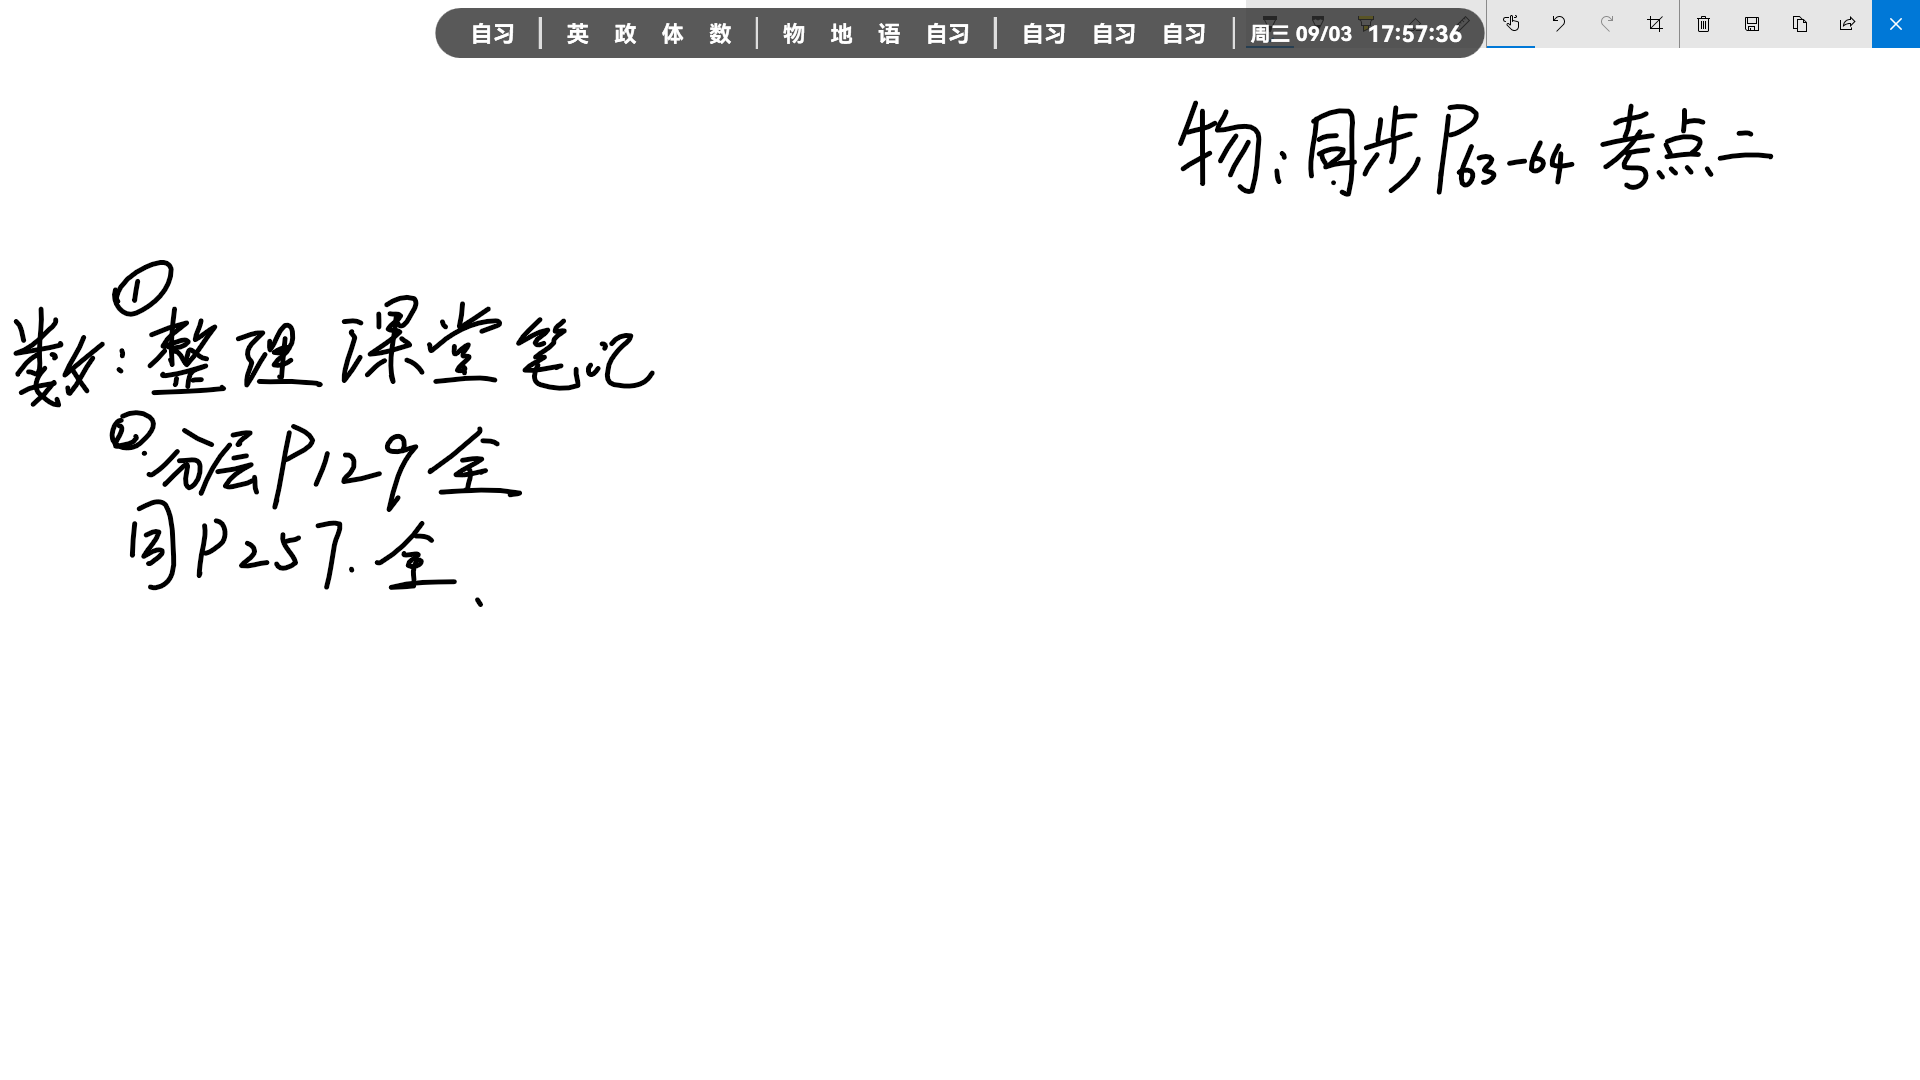 自习 | 英 政 体 数 | 物 地 语 自习 | 自习 自习 自习 | 周三 09/03 17:57:36
物：同步P63-64 考点二
数：①整理课堂笔记
②分层P129全
同P257.全、